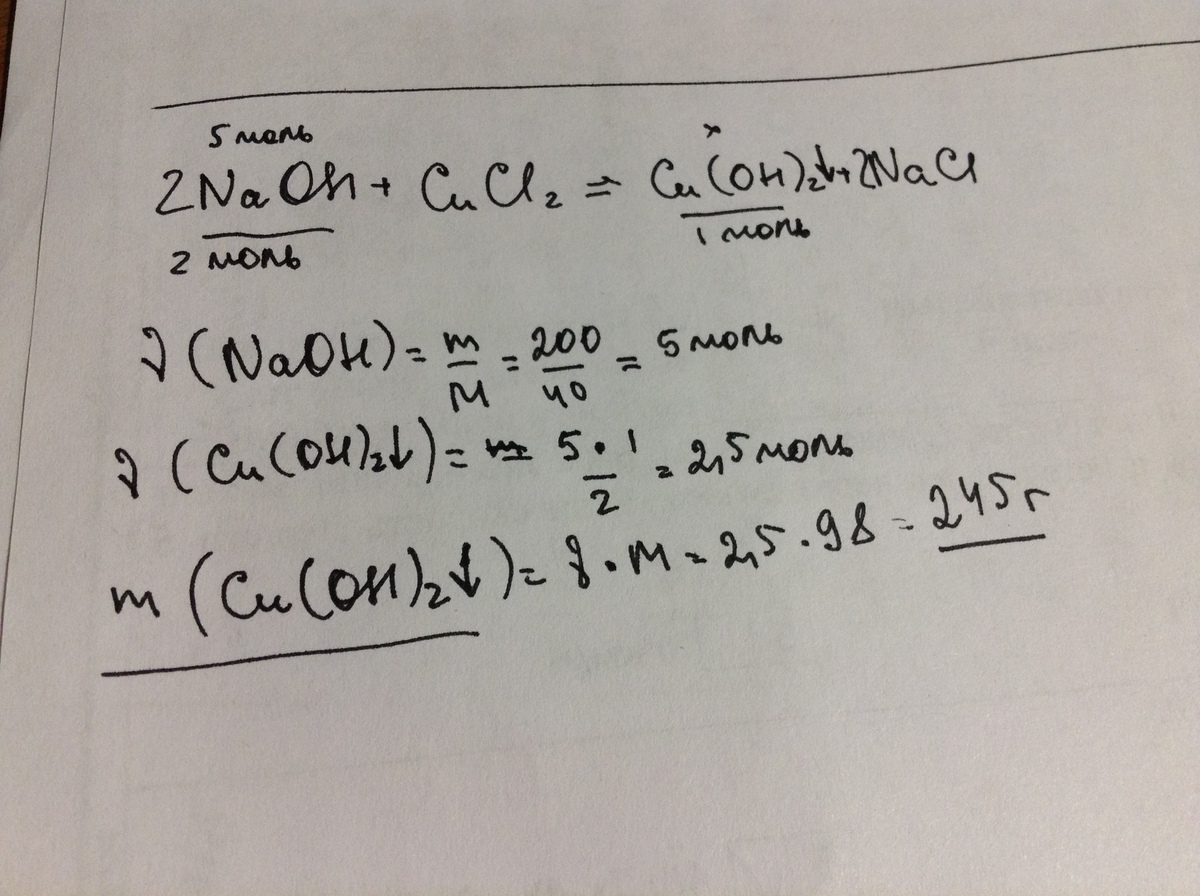 5 моль x
2NaOH + CuCl₂ = Cu(OH)₂↓+2NaCl
2 моль 1 моль
ν(NaOH) = m/M = 200/40 = 5 моль
ν(Cu(OH)₂↓) = 5·1/2 = 2,5 моль
m(Cu(OH)₂↓) = ν·M = 2,5·98 = 245 г